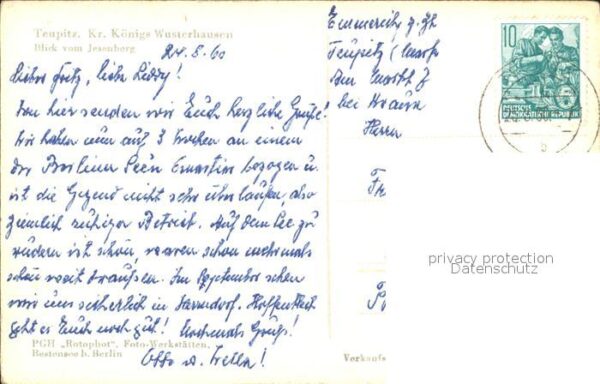 Teupitz. Kr. Königs Wusterhausen
Blick vom Jesenberg
24.8.60
Liebe Fritz, liebe Liddy!
Von hier senden wir Euch herzliche Grüße!
Wir haben nun auf 3 Wochen an einem
der Berliner Seen bezogen u.
ist die Gegend nicht sehr überlaufen, also
ziemlich ruhiger Betrieb. Auf dem See zu
rudern ist schön, waren schon mehrmals
schön weit draußen. Im September sehen
wir uns sicherlich in Hoffentlich
geht es Euch noch gut! Nochmals Grüße!
Otto u.
PGH „Rotophot", Foto-Werkstätten,
Bestensee b. Berlin
z. Zt
Teupitz (Mark
am Markt 7
bei
Herrn
10
DEUTSCHE
DEMOKRATISCHE REPUBLIK
privacy protection
Datenschutz
Verkaufs